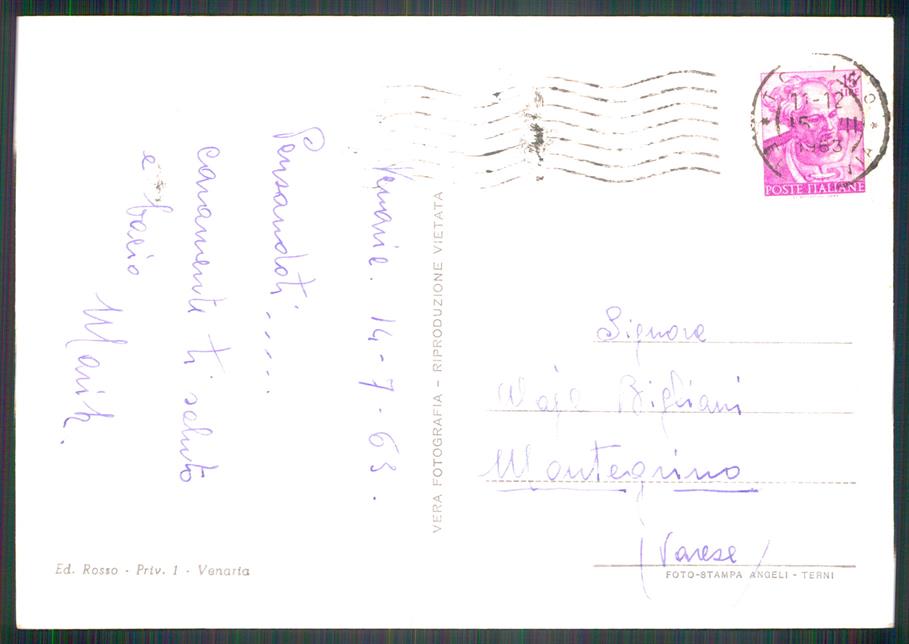 Venaria. 14-7-63.
Pensandoti.....
caramente ti saluto
e bacio
VERA FOTOGRAFIA - RIPRODUZIONE VIETATA
15
LIRE
11-12
15 VII
1963
POSTE ITALIANE
Signora
Bigliani
Montegrino
(Varese)
Ed. Rosso - Priv. 1 - Venaria
FOTO-STAMPA ANGELI - TERNI